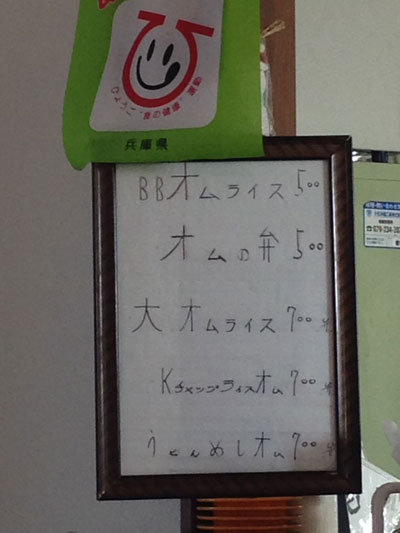 ひょうご"食の健康"運動
兵庫県
BBオムライス500
オムの弁500
大オムライス700
KチャップライスオムSpan700
うどんめしオム700
079-234-